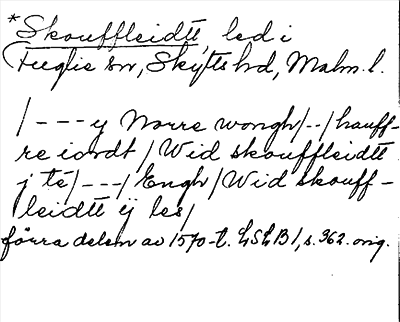 *Skouffleidtt, led i
Fuglie sn, Skytts hd, Malm. l.
/ - - - y Norre wongh/--/hauff-
re iordt / Wid skouffleidtt
j té/---/ Engh/Wid skouff-
leidtt ij les/
förra delen av 1570-t. LSLB 1, s. 362. orig.